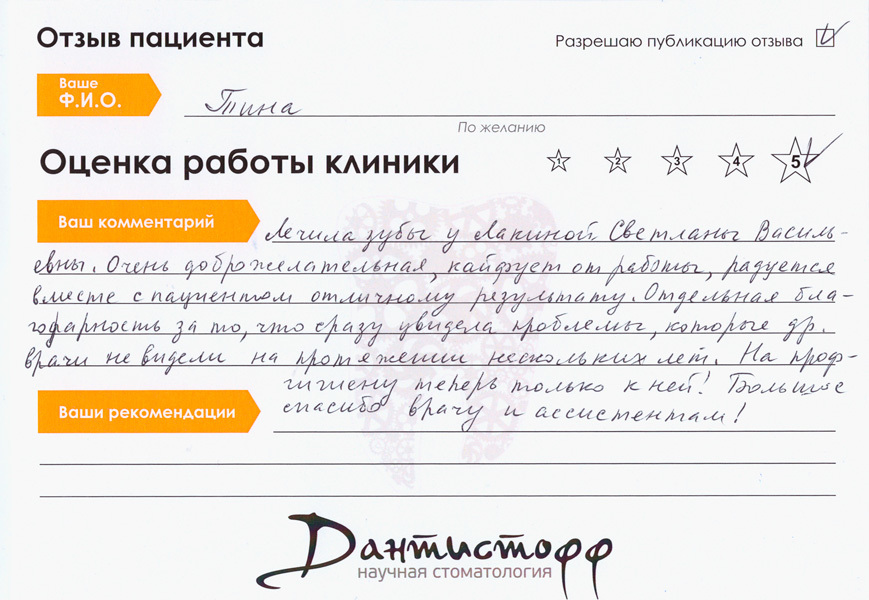 Отзыв пациента
Разрешаю публикацию отзыва
Ваше
Ф.И.О.
Тина
По желанию
Оценка работы клиники
1 2 3 4 5
Ваш комментарий
Лечила зубы у Лакиной Светланы Василь-
евны. Очень доброжелательная, кайфует от работы, радуется
вместе с пациентом отличному результату. Отдельная бла-
годарность за то, что сразу увидела проблемы, которые др.
врачи не видели на протяжении нескольких лет. На проф-
гигиену теперь только к ней! Большое
Ваши рекомендации
спасибо врачу и ассистентам!
Дантистофф
научная стоматология